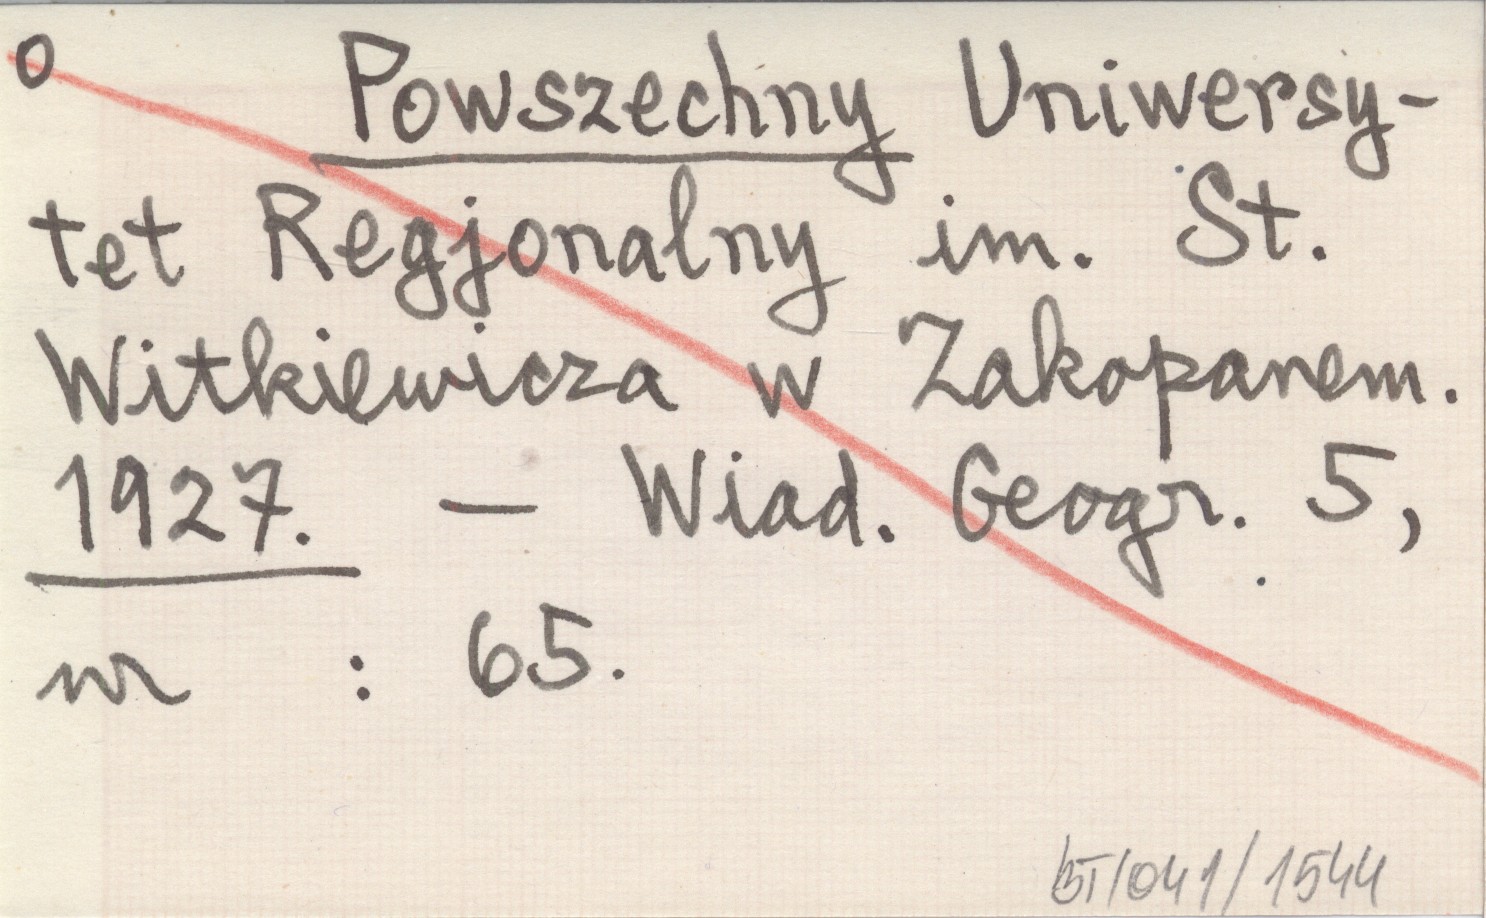 o Powszechny Uniwersy-
tet Regjonalny im. St.
Witkiewicza w Zakopanem.
1927. — Wiad. Geogr. 5,
nr : 65.
BT/041/1544